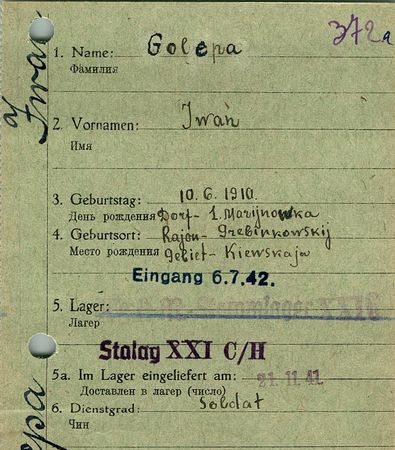 372a
1. Name: Golepa
Фамилия
2. Vornamen: Iwan
Имя
3. Geburtstag: 10.6.1910.
День рождения Dorf- 1. Marijnowka
4. Geburtsort: Rajon- Grebinkowskij
Место рождения Gebiet- Kiewskaja
Eingang 6.7.42.
5. Lager:
Лагер
Stalag XXI C/H
5a. Im Lager eingeliefert am: 21.11.41
Доставлен в лагер (число)
6. Dienstgrad: Soldat
Чин
Iwan